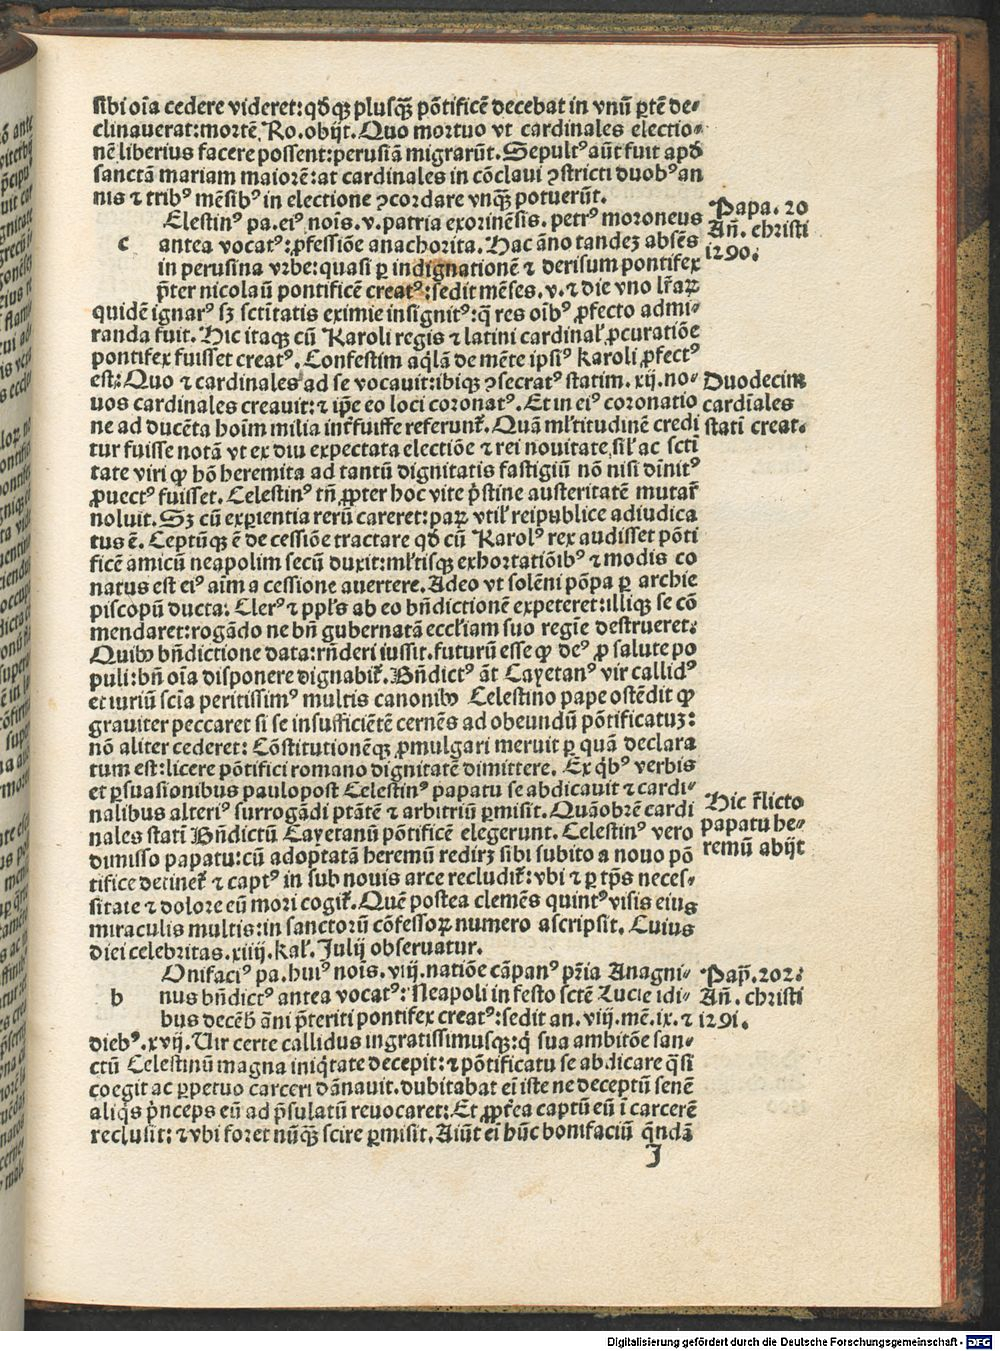 sibi oīa cedere videret: qđqꝫ plusqꝫ̄ pōtificē decebat in vnū ꝑtē de⸗
clinauerat: mortē Ro. obijt. Quo mortuo vt cardinales electio⸗
nē liberius facere possent: perusiā migrarūt. Sepultꝰ aūt fuit apđ
sanctā mariam maiorē: at cardinales in cōclaui ꝯstricti duobꝰ an
nis ⁊ tribꝰ mēsibꝰ in electione ꝯcordare vnqꝫ̄ potuerūt.
Elestinꝰ pa. eiꝰ noīs. v. patria exorinēsis. petrꝰ moroneus
c antea vocatꝰ: ꝓfessiōe anachorita. Hac āno tandeꝫ absēs
in perusina vrbe: quasi ꝑ indignationē ⁊ derisum pontifex
p̄ter nicolaū pontificē creatꝰ: sedit mēses. v. ⁊ die vno lr̄aꝝ
quidē ignarꝰ sꝫ sctītatis eximie insignitꝰ: q̄ res oībꝰ ꝓfecto admi⸗
randa fuit. Hic itaqꝫ cū Karoli regis ⁊ latini cardinaƚ ꝓcuratiōe
pontifex fuisset creatꝰ. Confestim aq̄lā de mēte ipsiꝰ Karoli ꝓfectꝰ
est: Quo ⁊ cardinales ad se vocauit: ibiqꝫ ꝯsecratꝰ statim. xij. no⸗
uos cardinales creauit: ⁊ ip̄e eo loci coronatꝰ. Et in eiꝰ coronatio
ne ad ducēta hoīm milia int̄fuisse referunt̄. Quā mƚtitudinē credi
tur fuisse notā vt ex diu expectata electiōe ⁊ rei nouitate, siƚ ac sctī
tate viri ꝙ hō heremita ad tantū dignitatis fastigiū nō nisi dīnitꝰ
ꝓuectꝰ fuisset. Celestinꝰ tn̄ ꝓpter hoc vite p̄stine austeritatē mutar̄
noluit. Sꝫ cū exꝑientia rerū careret: paꝝ vtiƚ reipublice adiudica
tus ē. Ceptūqꝫ ē de cessiōe tractare qđ cū Karolꝰ rex audisset pōti
ficē amicū neapolim secū duxit: mƚtisqꝫ exhortatiōibꝰ ⁊ modis co
natus est eiꝰ aīm a cessione auertere. Adeo vt solēni pōpa ꝑ archie
piscopū ducta: Clerꝰ ⁊ ppƚs ab eo bn̄dictionē expeteret: illiqꝫ se cō
mendaret: rogādo ne bn̄ gubernatā eccƚiam suo regīe destrueret:
Quibꝫ bn̄dictione data: rn̄deri iussit. futurū esse ꝙ deꝰ ꝓ salute po
puli: bn̄ oīa disponere dignabit̄. Bn̄dictꝰ āt Cayetanꝰ vir callidꝰ
et iuriū scīa peritissimꝰ multis canonibꝫ Celestino pape ostēdit ꝙ
grauiter peccaret si se insufficiētē cernēs ad obeundū pōtificatuꝫ:
nō aliter cederet: Cōstitutionēqꝫ ꝓmulgari meruit ꝑ quā declara
tum est: licere pōtifici romano dignitatē dimittere. Ex q̄bꝰ verbis
et ꝑsuasionibus paulopost Celestinꝰ papatu se abdicauit ⁊ cardi⸗
nalibus alteriꝰ surrogādi ptātē ⁊ arbitriū ꝑmisit. Quāobrē cardi
nales statī Bn̄dictū Cayetanū pōtificē elegerunt. Celestinꝰ vero
dimisso papatu: cū adoptatā heremū redirꝫ sibi subito a nouo pō
tifice detinet̄ ⁊ captꝰ in sub nouis arce recludit̄: vbi ⁊ ꝑ tp̄s neces⸗
sitate ⁊ dolore eū mori cogit̄. Quē postea clemēs quintꝰ visis eius
miraculis multis: in sanctorū cōfessoꝝ numero ascripsit. Cuius
diei celebritas. xiiij. kaƚ. Julij obseruatur.
Onifaciꝰ pa. huiꝰ nois. viij. natiōe cāpanꝰ pr̄ia Anagni⸗
b nus bn̄dictꝰ antea vocatꝰ: Neapoli in festo sctē Lucie idi⸗
bus decēb̄ āni p̄teriti pontifex creatꝰ: sedit an. viij. mē. ix. ⁊
diebꝰ. xvij. Vir certe callidus ingratissimusqꝫ: q̇ sua ambitōe san⸗
ctū Celestinū magna iniq̇tate decepit: ⁊ pōtificatu se abdicare q̄si
coegit ac ꝑpetuo carceri dānauit. dubitabat eī iste ne deceptū senē
aliq̇s ṗnceps eū ad p̄sulatū reuocaret: Et ꝓpt̄ea captū eū ī carcerē
reclusit: ⁊ vbi foret nūqꝫ̄ scire ꝑmisit. Aiūt eī hūc bonifaciū q̄ndā
J
Papa. 20
Añ. christi
1290.
Duodecim
cardīales
statī creat.
Hic r̄licto
papatu he⸗
remū abijt
Pap̄. 202.
Añ. christi
1291.
Digitalisierung gefördert durch die Deutsche Forschungsgemeinschaft - DFG